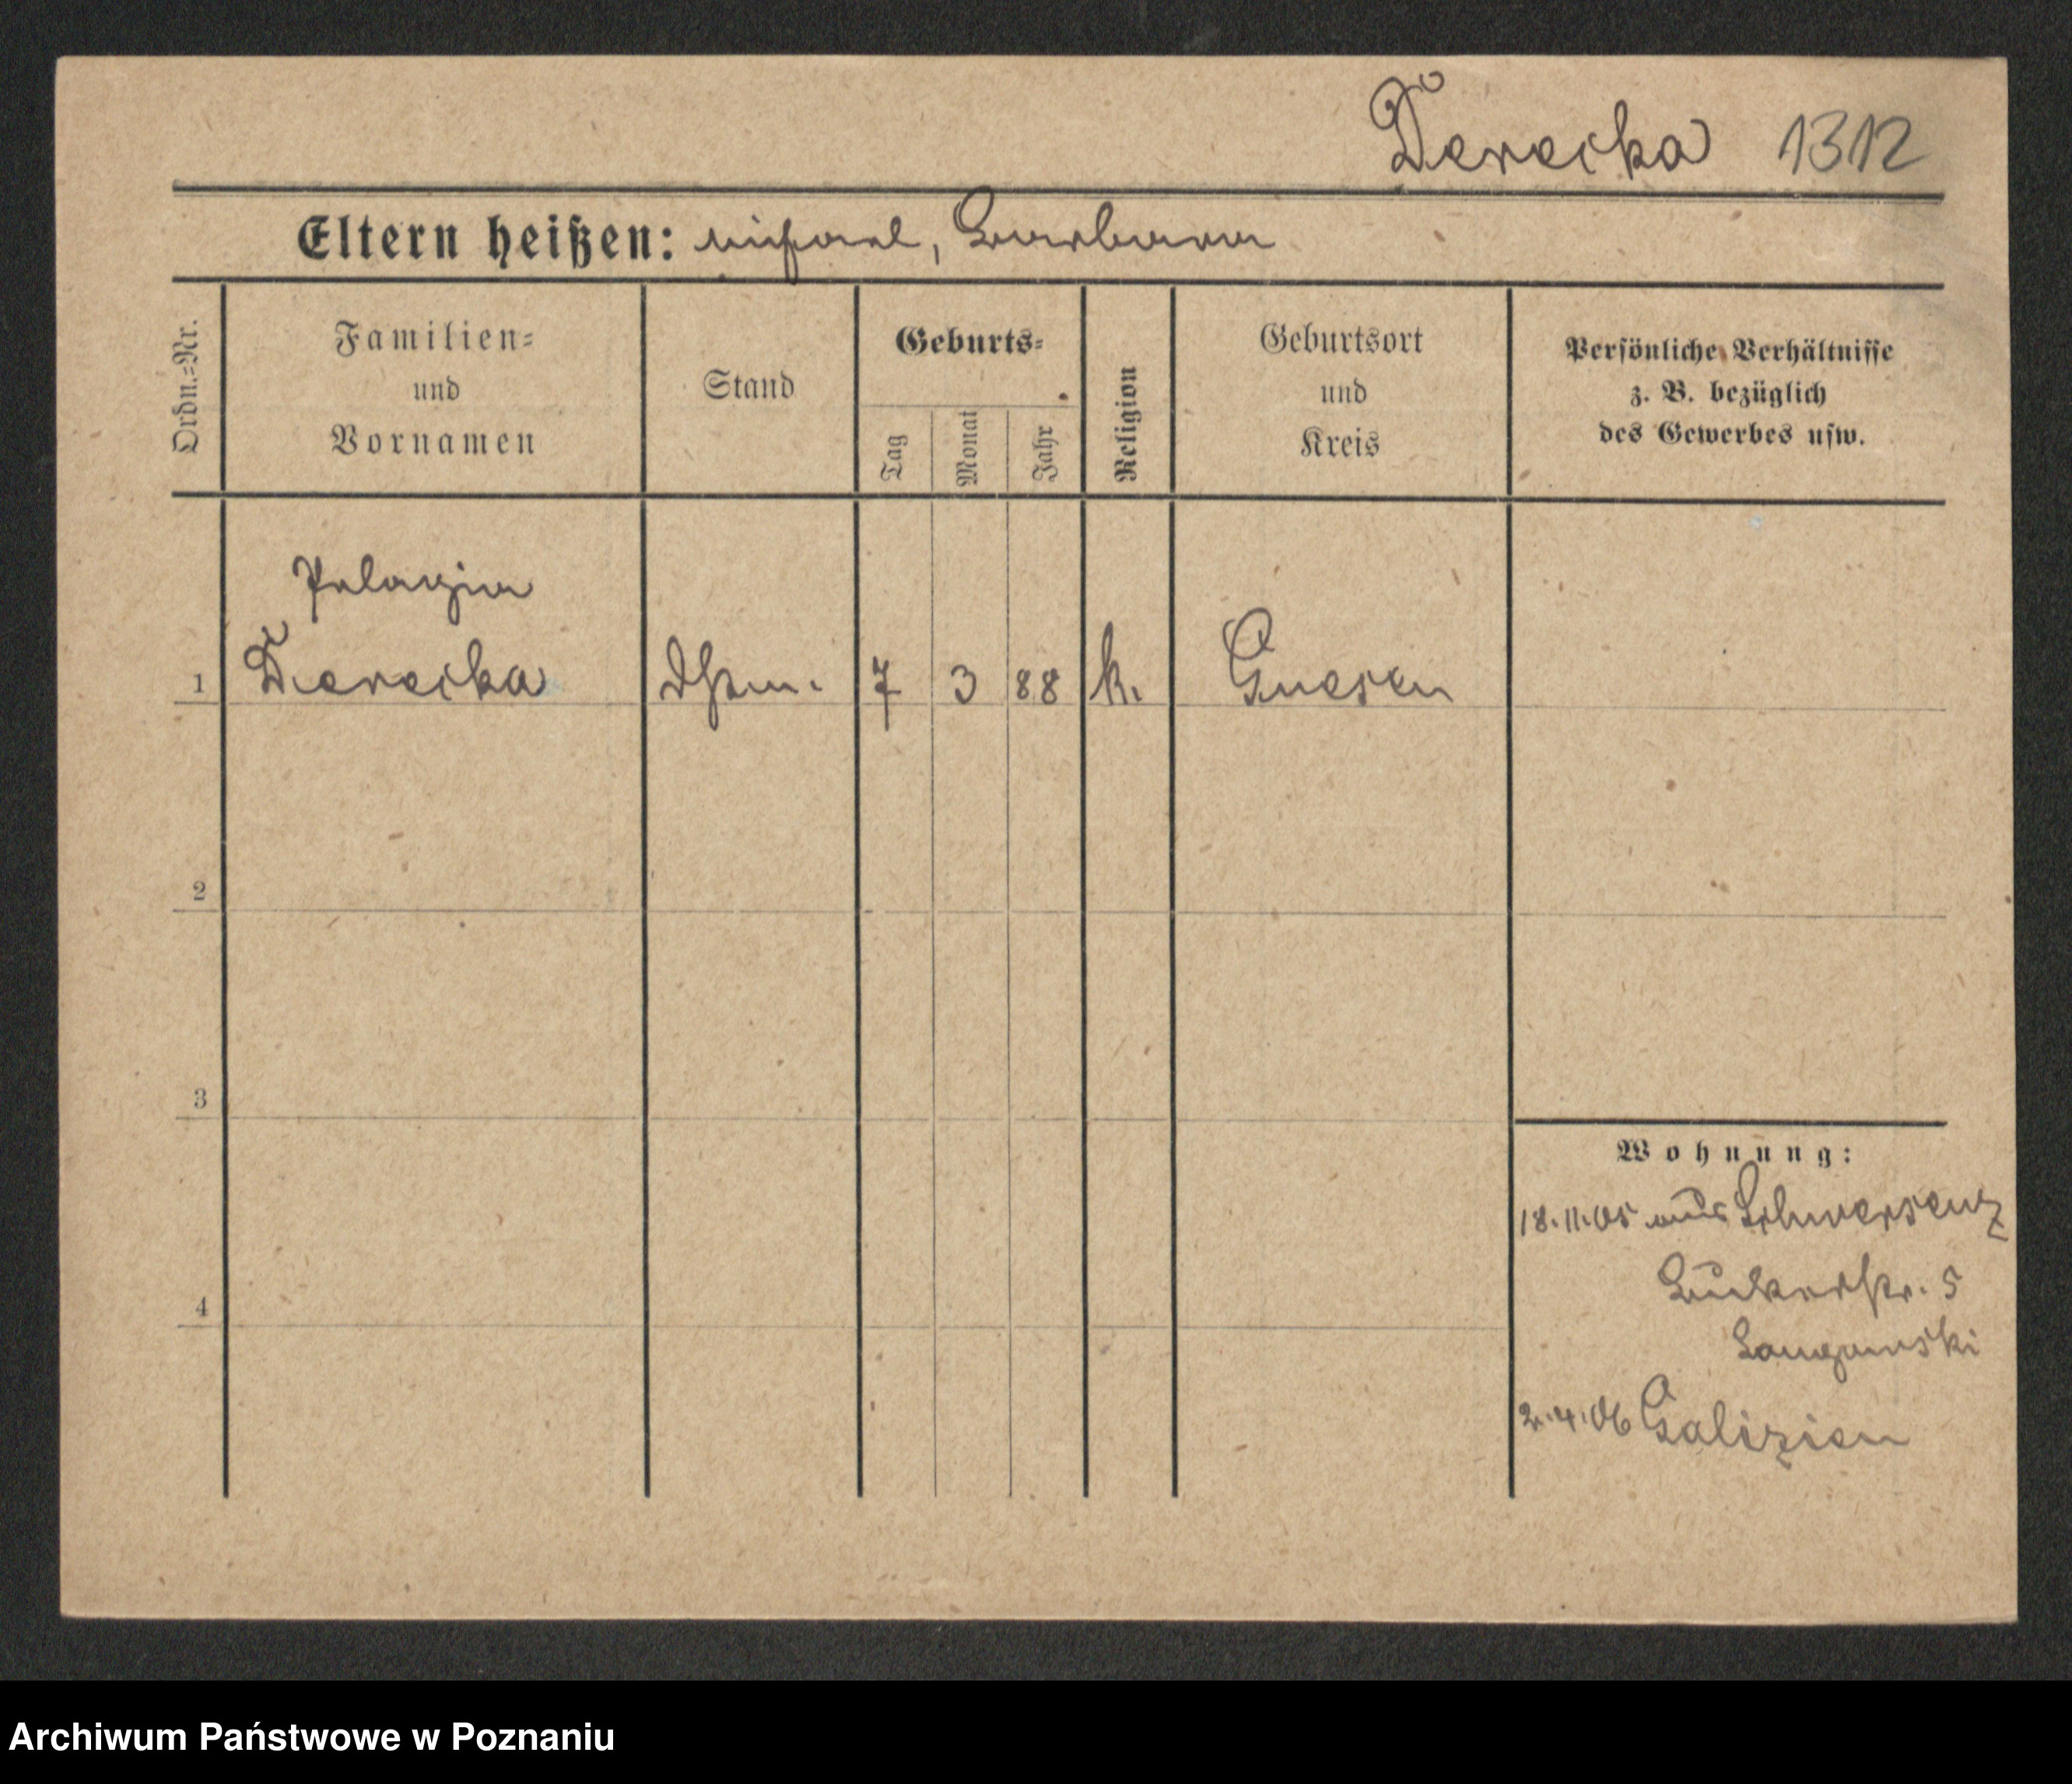 Derecka 1312
Eltern heißen: Michael, Barbara
Ordn.=Nr.
Familien=
und
Vornamen
Stand
Geburts=
Tag
Monat
Jahr
Religion
Geburtsort
und
Kreis
Persönliche Verhältnisse
z. B. bezüglich
des Gewerbes usw.
Pelagia
1 Derecka 7 3 88 k. Gnesen
2
3
4
Wohnung:
18.11.05 aus Schwersenz
Bukerstr. 5
2.4.06 Galizien
Archiwum Państwowe w Poznaniu